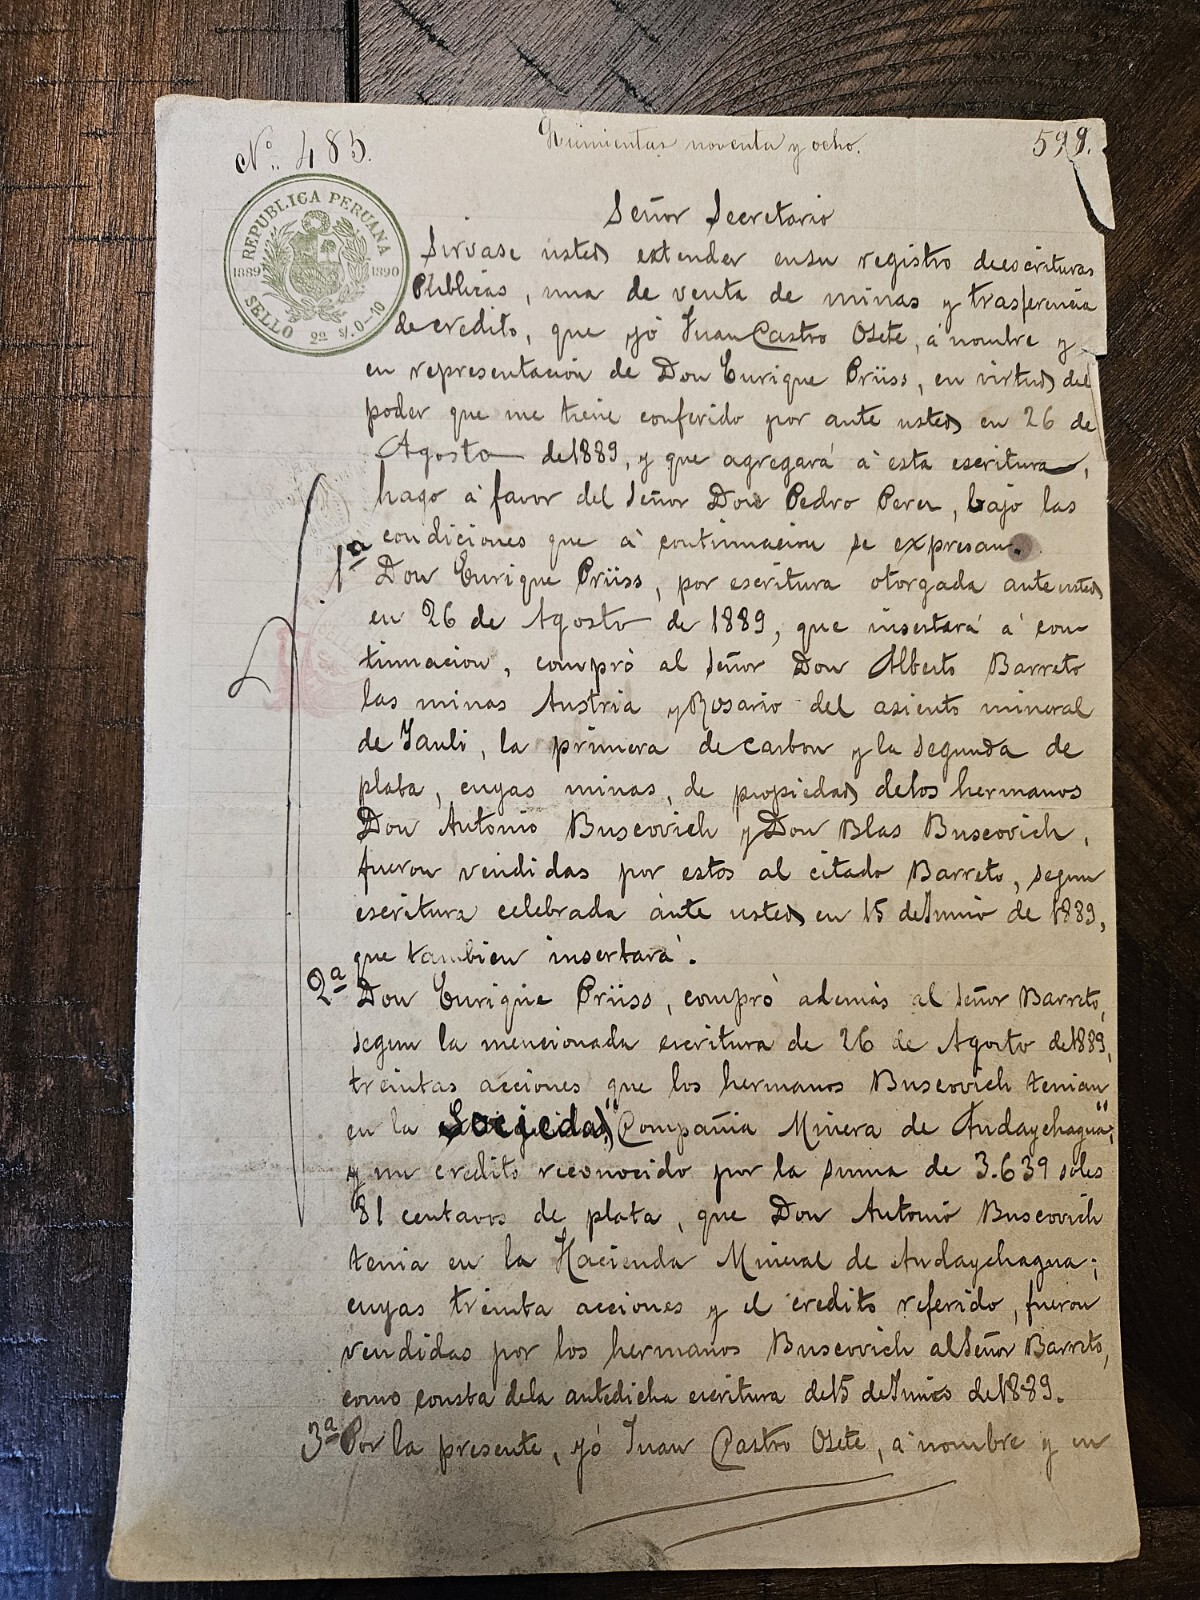 Nº. 485.
Quinientas noventa y ocho.
598.
REPUBLICA PERUANA
1889 1890
SELLO 2ª S/. 0-10
Señor Secretario
Sirvase usted extender en su registro de escrituras
Públicas, una de venta de minas y trasferencia
de credito, que yó Juan Castro Osete, á nombre y
en representacion de Don Enrique Prüss, en virtud del
poder que me tiene conferido por ante usted en 26 de
Agosto de 1889, y que agregará á esta escritura,
hago á favor del Señor Don Pedro Perez, bajo las
condiciones que á continuacion se expresan.
1ª Don Enrique Prüss, por escritura otorgada ante usted
en 26 de Agosto de 1889, que insertará á con-
tinuacion, compró al Señor Don Alberto Barreto
las minas Austria y Rosario del asiento mineral
de Yauli, la primera de carbon y la segunda de
plata, cuyas minas, de propiedad de los hermanos
Don Antonio Buscovich y Don Blas Buscovich,
fueron vendidas por estos al citado Barreto, segun
escritura celebrada ante usted en 15 de Junio de 1889,
que tambien insertará.
2ª Don Enrique Prüss, compró además al Señor Barreto,
segun la mencionada escritura de 26 de Agosto de 1889,
treintas acciones que los hermanos Buscovich tenian
en la Sociedad "Compañia Minera de Andaychagua";
y un credito reconocido por la suma de 3.639 soles
81 centavos de plata, que Don Antonio Buscovich
tenia en la Hacienda Mineral de Andaychagua;
cuyas treinta acciones y el credito referido, fueron
vendidas por los hermanos Buscovich al Señor Barreto,
como consta de la antedicha escritura de 15 de Junio de 1889.
3ª Por la presente, yó Juan Castro Osete, á nombre y en